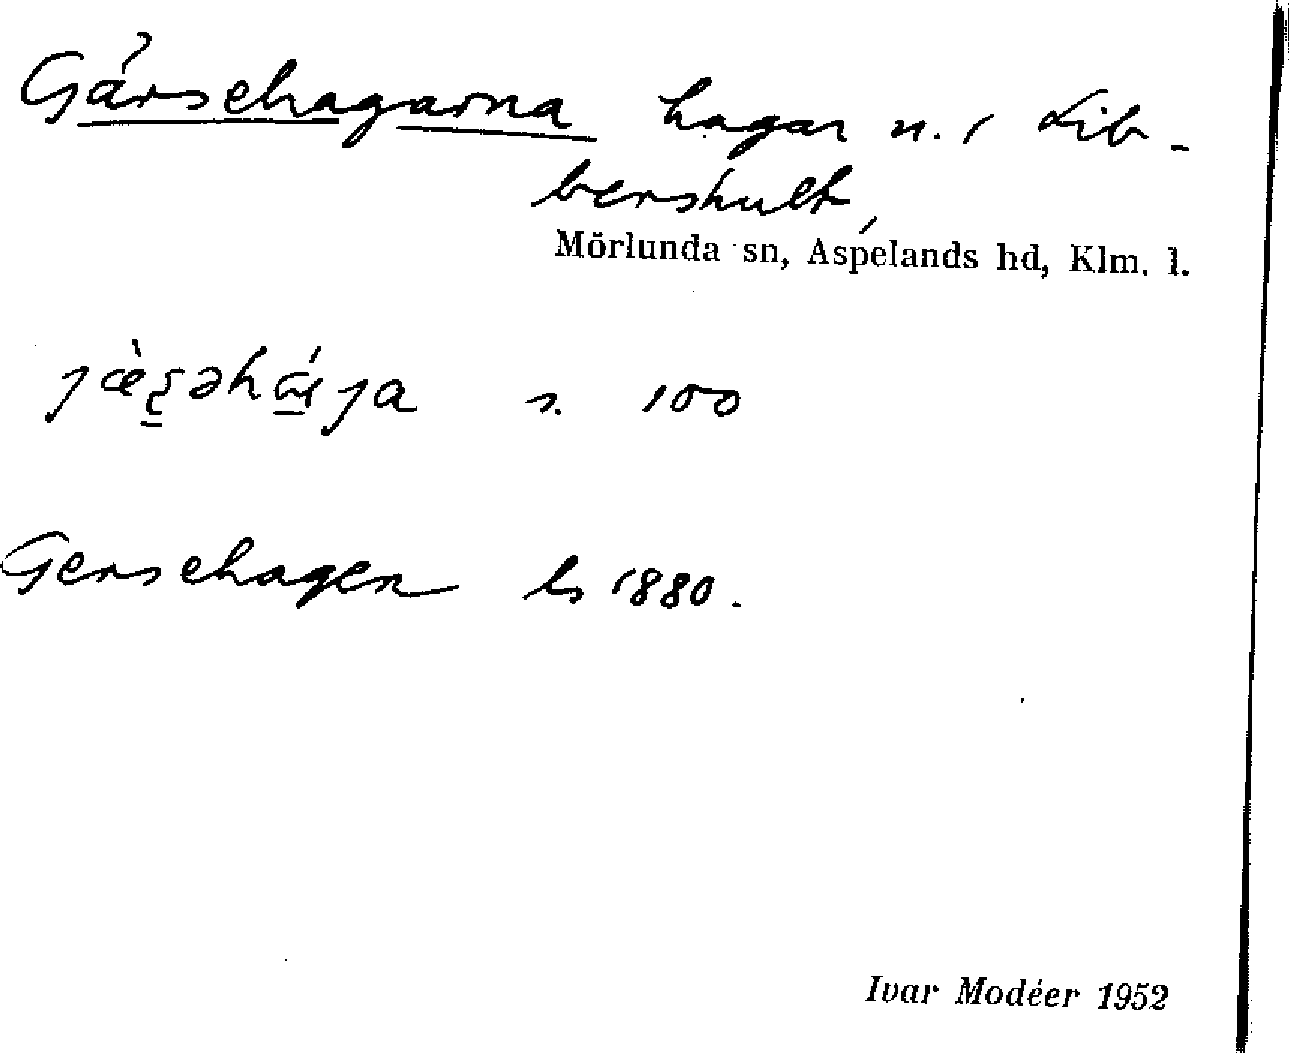 Gärsehagarna hagar n. i Lib-
bershult,
Mörlunda sn, Aspelands hd, Klm. l.
s. 100
Gersehagen ls 1880.
Ivar Modéer 1952